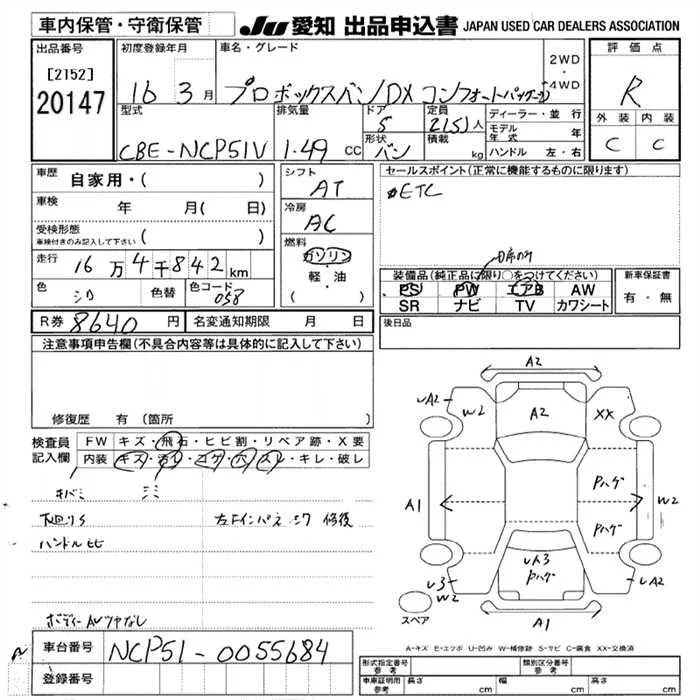 車内保管・守衛保管
JU 愛知 出品申込書 JAPAN USED CAR DEALERS ASSOCIATION
出品番号
[2152]
20147
初度登録年月
16 3月
車名・グレード
プロボックスバン/DX コンフォートパッケージ
2WD
・
4WD
評価点
R
外装 内装
C C
型式
CBE-NCP51V
排気量
1.49 CC
ドア
5
形状
バン
定員
2(5)人
積載
kg
ディーラー・並行
モデル年式 年
ハンドル 左・右
車歴
自家用・( )
車検
年 月( 日)
受検形態
車検付きのみ記入して下さい ( )
走行
16万4千842km
色
シロ
色替
色コード
058
シフト
AT
冷房
AC
燃料
ガソリン
軽・油
( )
セールスポイント(正常に機能するものに限ります)
ETC
装備品(純正品に限り○をつけてください)
PS PW エアB AW
SR ナビ TV カワシート
新車保証書
有・無
後日品
R券 8640円
名変通知期限 月 日
注意事項申告欄(不具合内容等は具体的に記入して下さい)
修復歴 有(箇所
検査員記入欄
FW キズ・飛石・ヒビ割・リペア跡・X要
内装 キズ・汚レ・コゲ・穴・スレ・キレ・破レ
下廻りS
左Fインパネ 修後
ハンドル
ボディー
なし
車台番号
NCP51-0055684
登録番号
A2
A2
W2
A2
XX
A1
Pハゲ
Pハゲ
W2
UA3
Pハゲ
U3
W2
UA2
A1
スペア
A-キズ E-エクボ U-凹み W-補修跡 S-サビ C-腐食 XX-交換済
形式指定番号
参考
類別区分番号
参考
車庫証明用
参考
長さ cm
幅 cm
高さ cm